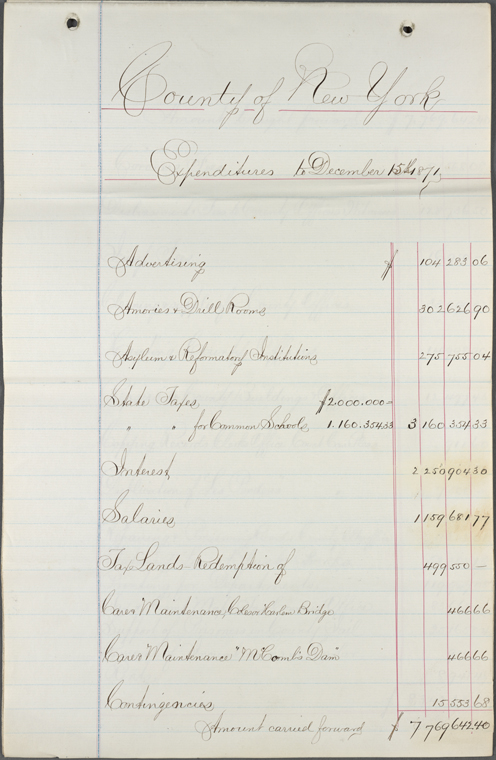 County of New York
Expenditures to December 15th 1871
Advertising $ 104 283 06
Amories & Drill Rooms 302 626 90
Asylum & Reformatory Institutions 275 755 04
State Taxes, $2000.000–
" " for Common Schools, 1.160.354.33 3 160 354 33
Interest 2 250 904 30
Salaries, 1 159 681 77
Tax Lands – Redemption of 499 550 –
Care & Maintenance, Harlem Bridge 466 66
Care & Maintenance "McCombs Dam" 466 66
Contingencies, 15 553 68
Amount carried forward $ 7 769 642 40